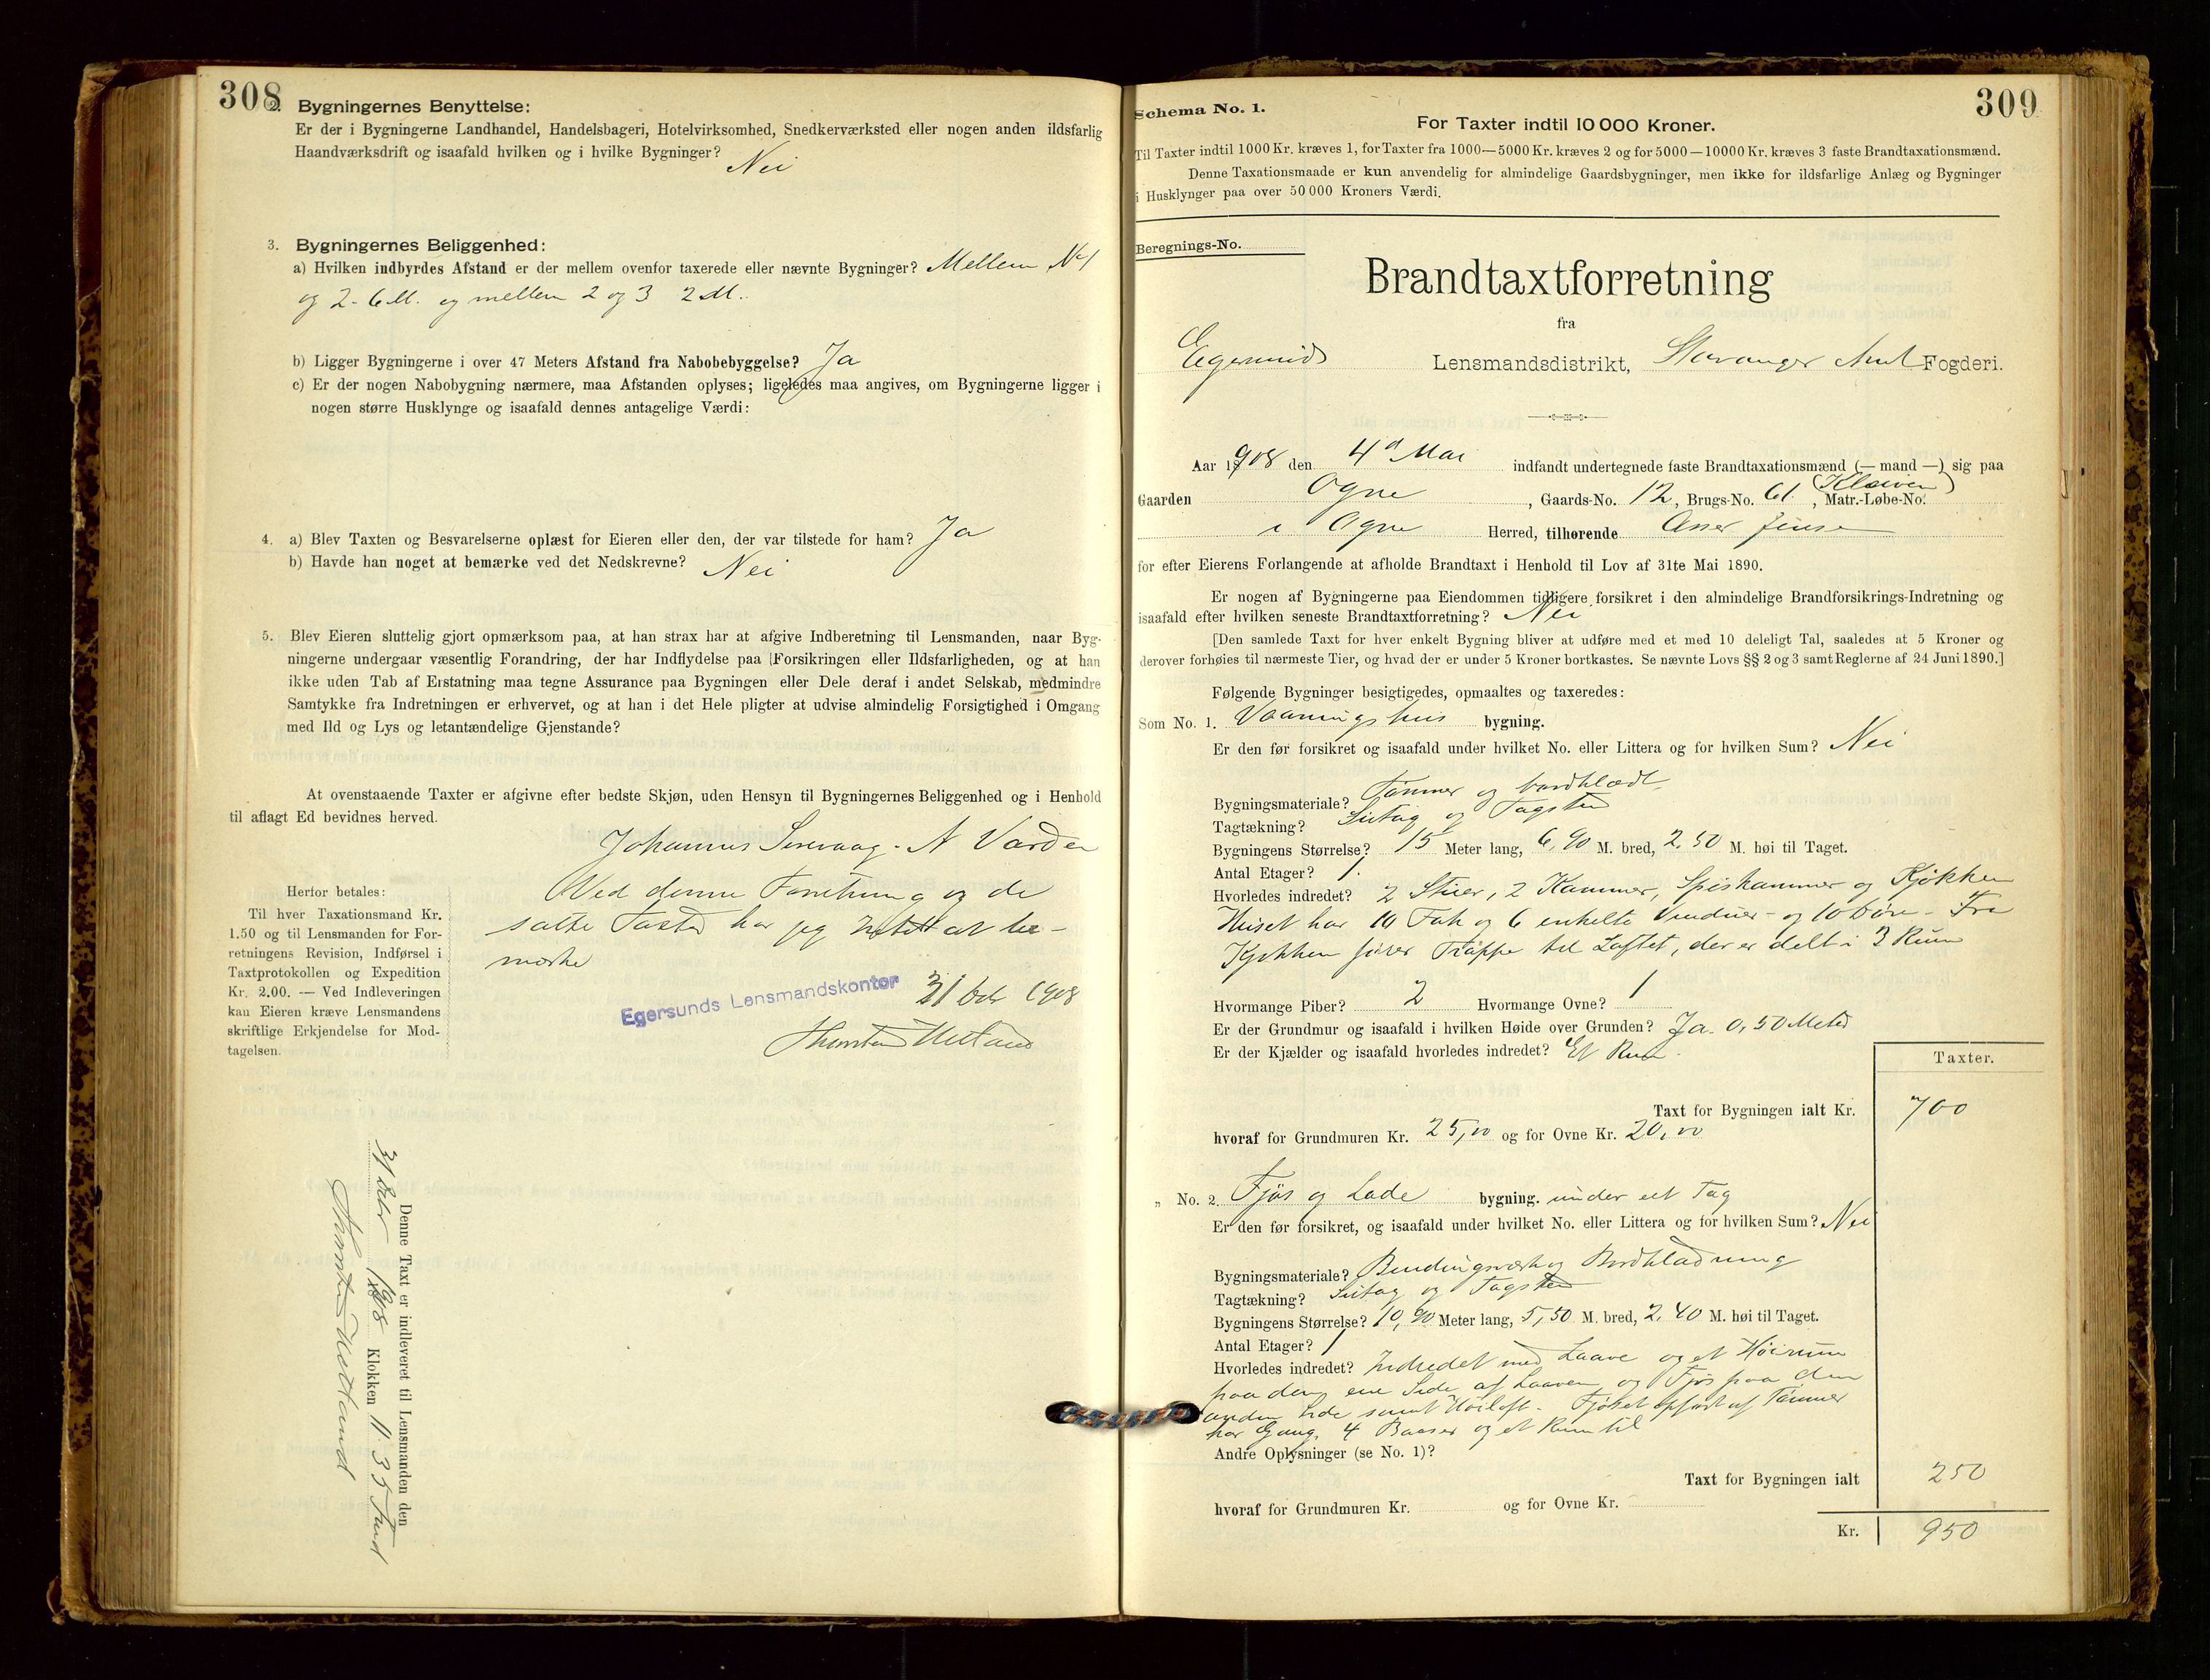 308
2. Bygningernes Benyttelse:
Er der i Bygningerne Landhandel, Handelsbageri, Hotelvirksomhed, Snedkerværksted eller nogen anden ildsfarlig
Haandværksdrift og isaafald hvilken og i hvilke Bygninger? Nei
3. Bygningernes Beliggenhed:
a) Hvilken indbyrdes Afstand er der mellem ovenfor taxerede eller nævnte Bygninger? Mellem No 1
og 2 - 6 M. og mellem 2 og 3 2 M.
b) Ligger Bygningerne i over 47 Meters Afstand fra Nabobebyggelse? Ja
c) Er der nogen Nabobygning nærmere, maa Afstanden oplyses; ligeledes maa angives, om Bygningerne ligger i
nogen større Husklynge og isaafald dennes antagelige Værdi:
4. a) Blev Taxten og Besvarelserne oplæst for Eieren eller den, der var tilstede for ham? Ja
b) Havde han noget at bemærke ved det Nedskrevne? Nei
5. Blev Eieren sluttelig gjort opmærksom paa, at han strax har at afgive Indberetning til Lensmanden, naar Byg-
ningerne undergaar væsentlig Forandring, der har Indflydelse paa Forsikringen eller Ildsfarligheden, og at han
ikke uden Tab af Erstatning maa tegne Assurance paa Bygningen eller Dele deraf i andet Selskab, medmindre
Samtykke fra Indretningen er erhvervet, og at han i det Hele pligter at udvise almindelig Forsigtighed i Omgang
med Ild og Lys og letantændelige Gjenstande?
At ovenstaaende Taxter er afgivne efter bedste Skjøn, uden Hensyn til Bygningernes Beliggenhed og i Henhold
til aflagt Ed bevidnes herved.
Johannes Sirevaag - N Varden
Ved denne Forretning og de
satte Taxter har jeg intet at be-
mærke
Egersunds Lensmandskontor 31 Oct 1908
Herfor betales:
Til hver Taxationsmand Kr.
1.50 og til Lensmanden for For-
retningens Revision, Indførsel i
Taxtprotokollen og Expedition
Kr. 2.00. — Ved Indleveringen
kan Eieren kræve Lensmandens
skriftlige Erkjendelse for Mod-
tagelsen.
Denne Taxt er indleveret til Lensmanden den
31 Octbr 1908 Klokken 11 35 Fmd
309
Schema No. 1.
For Taxter indtil 10 000 Kroner.
Til Taxter indtil 1000 Kr. kræves 1, for Taxter fra 1000—5000 Kr. kræves 2 og for 5000—10000 Kr. kræves 3 faste Brandtaxationsmænd.
Denne Taxationsmaade er kun anvendelig for almindelige Gaardsbygninger, men ikke for ildsfarlige Anlæg og Bygninger
i Husklynger paa over 50 000 Kroners Værdi.
Beregnings-No.
Brandtaxtforretning
fra
Egersunds Lensmandsdistrikt, Stavanger Amt Fogderi.
Aar 1908 den 4d Mai indfandt undertegnede faste Brandtaxationsmænd (— mand —) sig paa
Gaarden Ogne, Gaards-No. 12, Brugs-No. 61, Matr.-Løbe-No. (Kleiven)
i Ogne Herred, tilhørende Asser Jensen
for efter Eierens Forlangende at afholde Brandtaxt i Henhold til Lov af 31te Mai 1890.
Er nogen af Bygningerne paa Eiendommen tidligere forsikret i den almindelige Brandforsikrings-Indretning og
isaafald efter hvilken seneste Brandtaxtforretning? Nei
[Den samlede Taxt for hver enkelt Bygning bliver at udføre med et med 10 deleligt Tal, saaledes at 5 Kroner og
derover forhøies til nærmeste Tier, og hvad der er under 5 Kroner bortkastes. Se nævnte Lovs §§ 2 og 3 samt Reglerne af 24 Juni 1890.]
Følgende Bygninger besigtigedes, opmaaltes og taxeredes:
Som No. 1. Vaaningshus bygning.
Er den før forsikret og isaafald under hvilket No. eller Littera og for hvilken Sum? Nei
Bygningsmateriale? Tømmer og bordklædt
Tagtækning? Sutag og Tagsten
Bygningens Størrelse? 15 Meter lang, 6,90 M. bred, 2,50 M. høi til Taget.
Antal Etager? 1.
Hvorledes indredet? 2 Stuer, 2 Kammer, Spiskammer og Kjøkken
Huset har 10 Fah og 6 enkelte Vinduer - og 10 Døre - Fra
Kjøkken fører Trappe til Loftet, der er delt i 3 Rum
Hvormange Piber? 2 Hvormange Ovne? 1
Er der Grundmur og isaafald i hvilken Høide over Grunden? Ja 0,50 Meter
Er der Kjælder og isaafald hvorledes indredet? Et Rum
Taxter.
Taxt for Bygningen ialt Kr. 700
hvoraf for Grundmuren Kr. 25,00 og for Ovne Kr. 20,00
„ No. 2. Fjøs og Lade bygning. under eet Tag
Er den før forsikret, og isaafald under hvilket No. eller Littera og for hvilken Sum? Nei
Bygningsmateriale? Bindingsverk og Bordklædning
Tagtækning? Sutag og Tagsten
Bygningens Størrelse? 10,90 Meter lang, 5,50 M. bred, 2,40 M. høi til Taget.
Antal Etager? 1
Hvorledes indredet? Indredet med Laave og et Høirum
paa den ene Side af Laaven og Fjøs paa den
anden Side samt Høiloft. Fjøset opført af Tømmer
har Gang, 4 Baaser og et Rum til
Andre Oplysninger (se No. 1)?
Taxt for Bygningen ialt 250
hvoraf for Grundmuren Kr. og for Ovne Kr.
Kr. 950